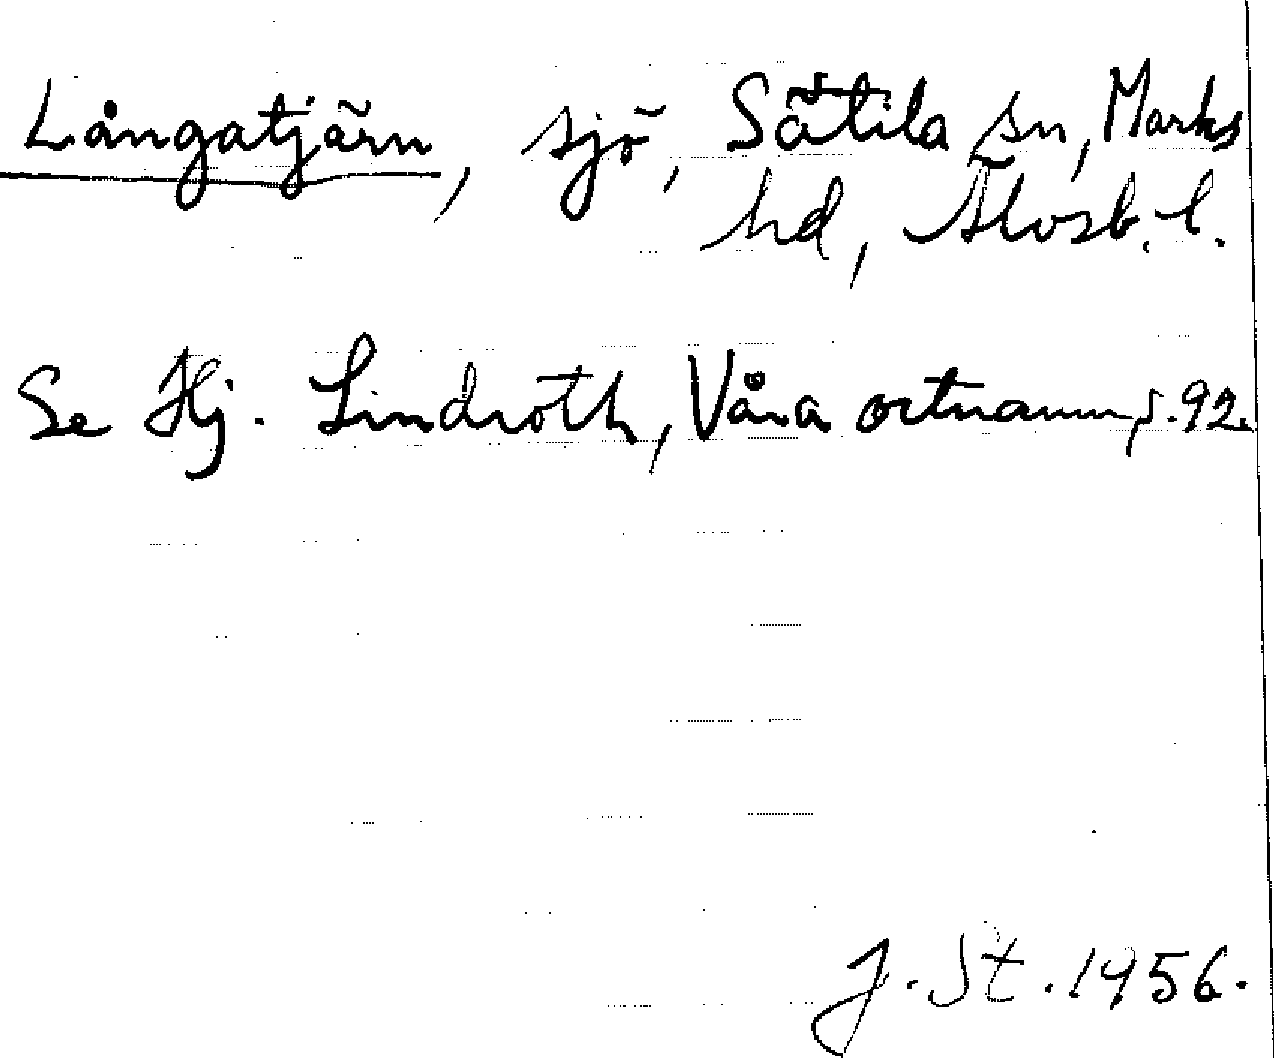 Långatjärn, sjö, Sätila sn, Marks
hd, Älvsb. l.
Se Hj. Lindroth, Våra ortnamn, s. 92.
J. St. 1956.